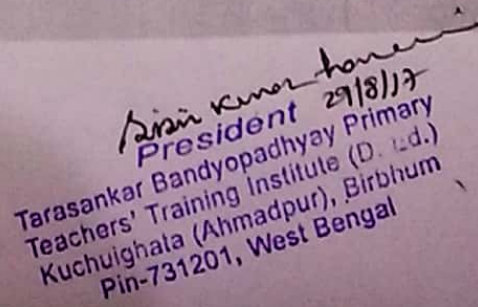 Kumar
29/8/17
President
Tarasankar Bandyopadhyay Primary
Teachers' Training Institute (D. Ed.)
Kuchuighata (Ahmadpur), Birbhum
Pin-731201, West Bengal